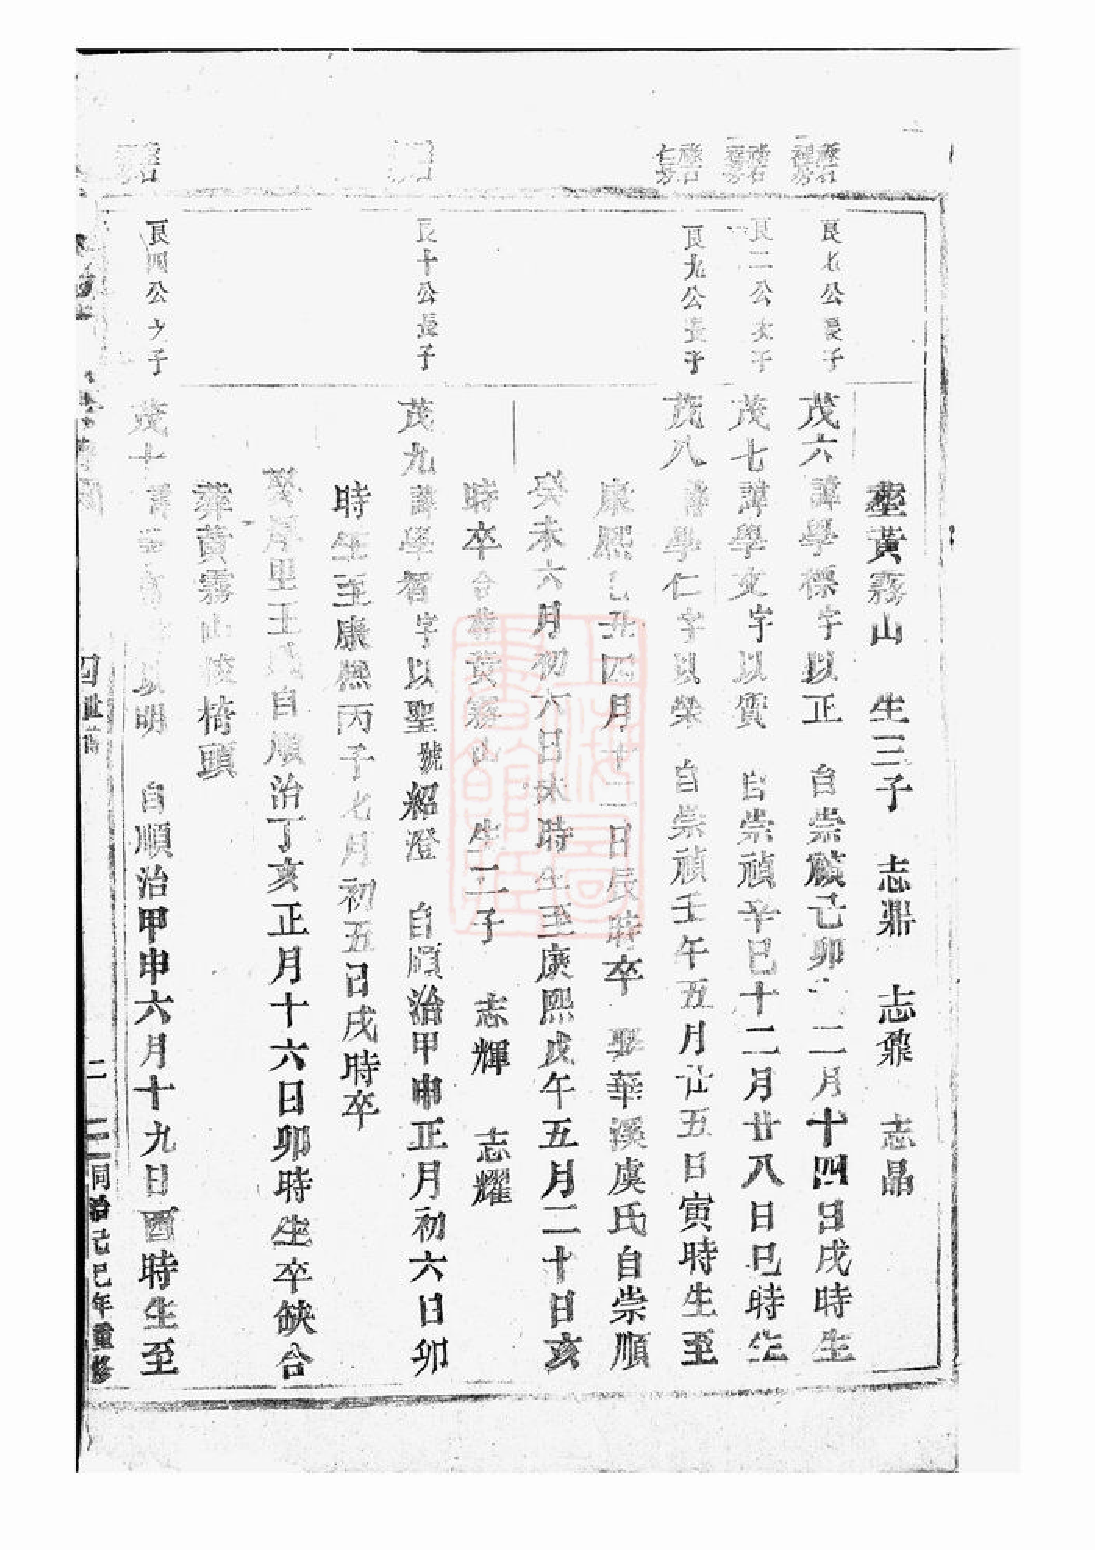 塟黃霧山 生三子 志鼎 志鼐 志晶
良七公長子
茂六諱學標字以正 自崇禎己卯 二月十四日戌時生
良二公次子
茂七諱學文字以質 自崇禎辛巳十二月廿八日巳時生
良九公長子
茂八諱學仁字以榮 自崇禎壬午五月廿五日寅時生至
康熙己丑四月十二日辰時卒 娶華溪虞氏自崇順
癸未六月初六日未時生至康熙戊午五月二十日亥
時卒合葬黃霧山 生二子 志輝 志耀
良十公長子
茂九諱學智字以聖號紹澄 自順治甲申正月初六日卯
時生至康熙丙子七月初五日戌時卒
娶厚里王氏自順治丁亥正月十六日卯時生卒缺合
葬黃霧山 椅頭
良四公 子
茂十諱 以明 自順治甲申六月十九日酉時生至
同治己巳年重修